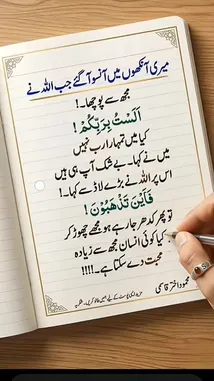 میری آنکھوں میں آنسو آگئے جب اللہ نے
مجھ سے پوچھا۔!
اَلَسْتُ بِرَبِّكُمْ!
کیا میں تمہارا رب نہیں
میں نے کہا۔ بے شک آپ ہی ہیں
اس پر اللہ نے بڑے لاڈ سے کہا۔!
فَاَيْنَ تَذْهَبُوْنَ!
تو پھر کدھر جا رہے ہو مجھے چھوڑ کر
کیا کوئی انسان مجھ سے زیادہ
محبت دے سکتا ہے۔!!!!
محمود اختر قاسمی
مزید ایسی پوسٹ کے لیے ہمیں فالو کریں۔ شکریہ